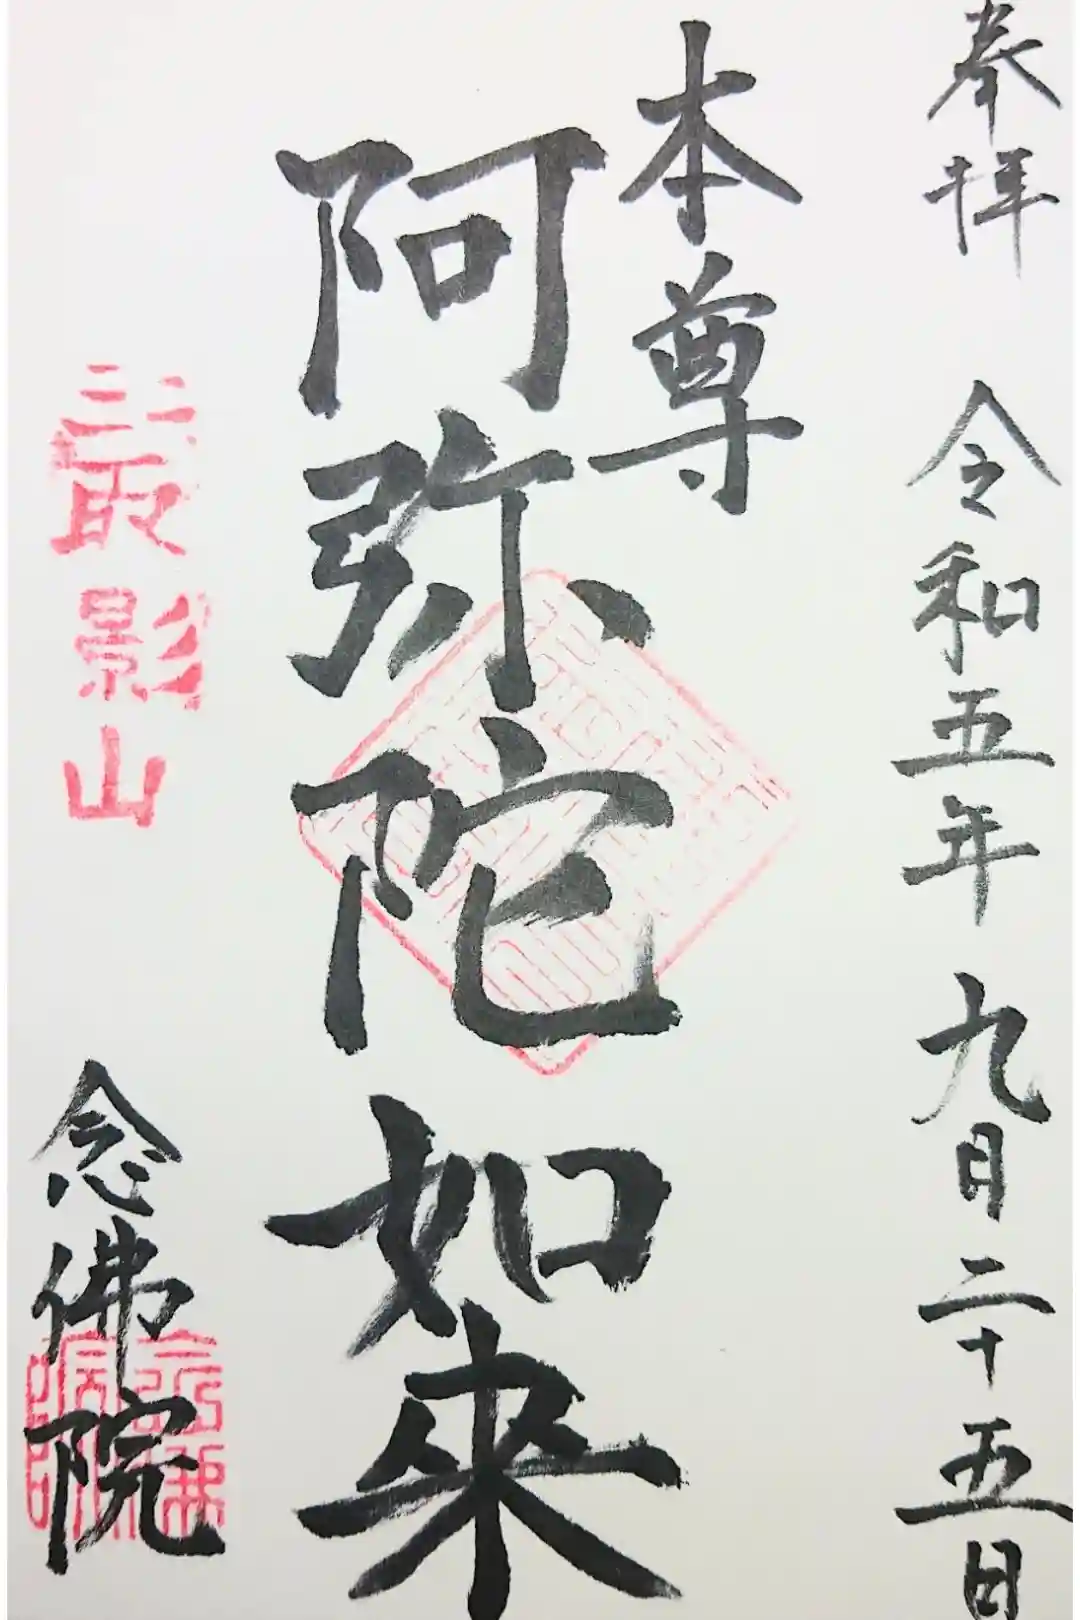 奉拝 令和五年 九月二十五日
本尊
阿弥陀如来
影山
念佛院